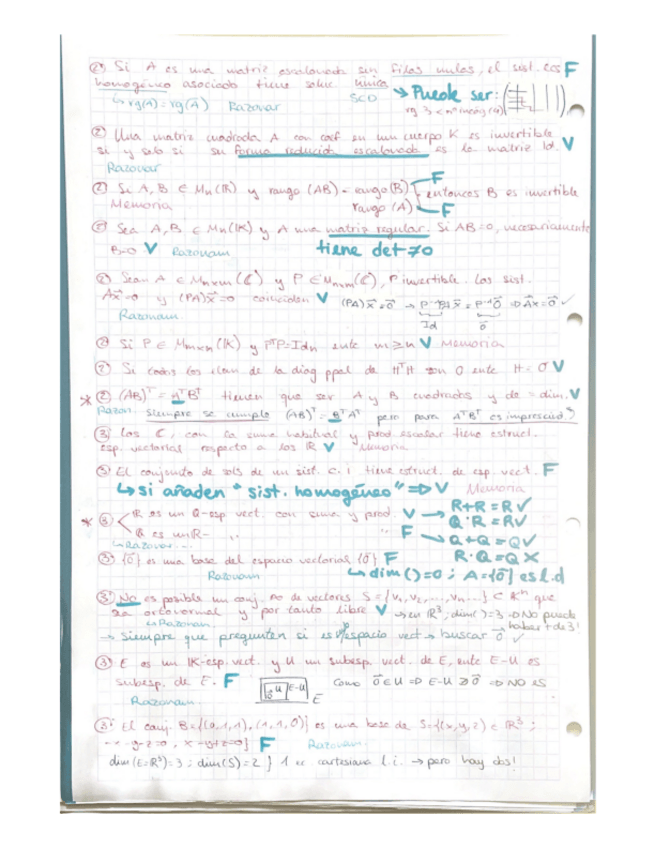 ② Si A es una matriz escalonada sin filas nulas, el sist. ces F
homogéneo asociado tiene soluc. única → Puede ser:
↳ rg(A) = rg(A) Razonar SCD rg 3 < nº incóg (n)
② Una matriz cuadrada A con coef en un cuerpo K es invertible
si y solo si su forma reducida escalonada es la matriz Id. V
Razonar
② Si A, B ∈ Mn(ℝ) y rango (AB) = rango (B) F entonces B es invertible
Memoria rango (A) F
② Sea A, B ∈ Mn(K) y A una matriz regular. Si AB=0, necesariamente
B=0 V Razonam tiene det ≠ 0
② Sean A ∈ Mnxm (ℂ) y P ∈ Mnxn(ℂ), P invertible. Los sist.
Ax⃗=0 y (PA)x⃗=0 coinciden V (PA)x⃗=0⃗ → P⁻¹PAx⃗ = P⁻¹0⃗ ⇒ Ax⃗=0⃗ ✓
Razonam. Id 0⃗
② Si P ∈ Mmxn(K) y PᵀP=Idn ente m≥n V Memoria
② Si todos los elem de la diag ppal de HᵀH son 0 ente H=0 V
* ② (AB)ᵀ = AᵀBᵀ tienen que ser A y B cuadradas y de = dim. V
Razon. Siempre se cumple (AB)ᵀ = BᵀAᵀ pero para AᵀBᵀ es imprescind
③ Los ℂ, con la suma habitual y prod. escalar tiene estruct.
esp. vectorial respecto a los ℝ V Memoria
③ El conjunto de sols de un sist. C.I tiene estruct. de esp. vect. F
↳ si añaden "sist. homogéneo" ⇒ V Memoria
* ③ ℝ es un ℚ-esp vect. con suma y prod. V → R+R = R V
Q·R = R V
ℚ es un ℝ- .. .. F → Q+Q = Q V
↳ Razonar... R·Q = Q X
③ {0⃗} es una base del espacio vectorial {0⃗} F
Razonam ↳ dim()=0 ; A={0⃗} es l.d
③ No es posible un conj. no de vectores S={v₁, v₂, ..., vn...} ⊂ Kⁿ que
sea ortonormal y por tanto libre V → en ℝ³, dim()=3 ⇒ No puede
↳ Razonam. haber + de 3!
→ Siempre que pregunten si es espacio vect → buscar 0⃗ ✓
③ E es un K-esp. vect. y U un subesp. vect. de E, ente E-U es
subesp. de E. F U E-U E Como 0⃗∈U ⇒ E-U ∌ 0⃗ ⇒ NO es
Razonam.
③ El conj. B={(0,1,1), (1,1,0)} es una base de S={(x,y,z) ∈ ℝ³ ;
x-y+z=0} F Razonam.
dim (E=ℝ³)=3 ; dim(S)=2 } 1 ec cartesiana l.i. → pero hay dos!